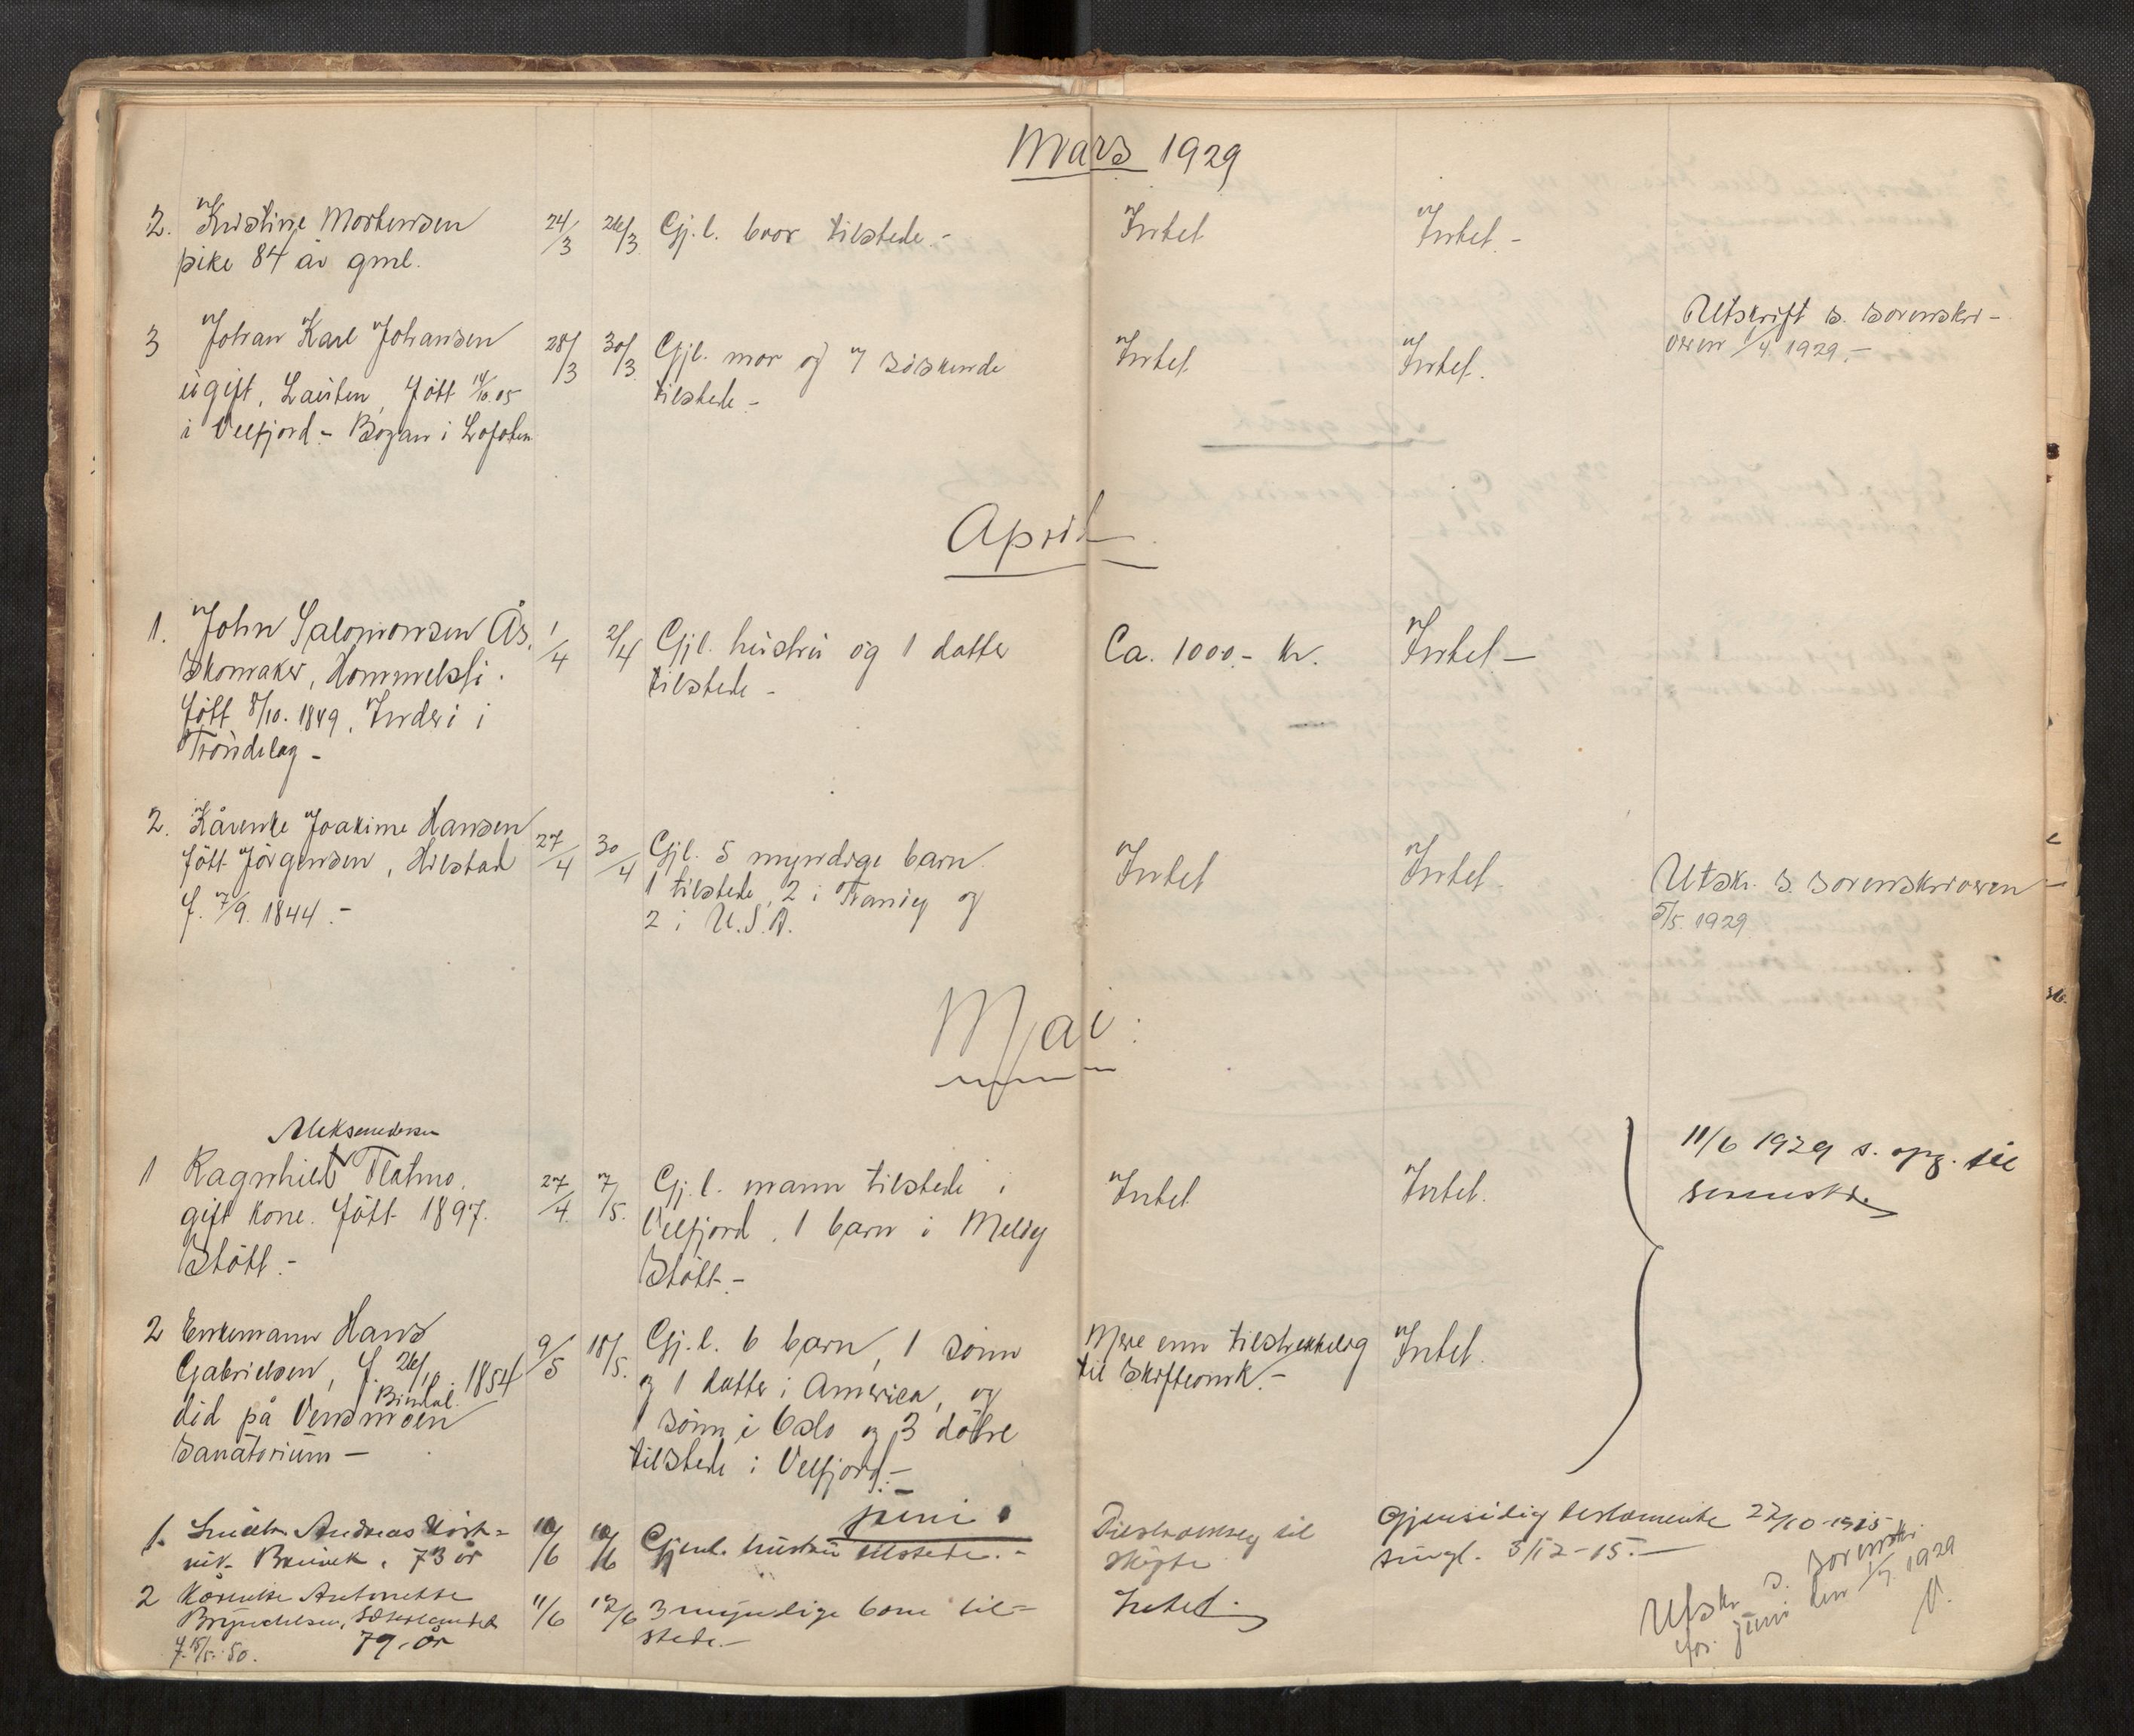 Mars 1929
2. Kristine Mortensen 24/3 26/3 Gj.l. bror tilstede.- Intet Intet -
pike 84 år gml.
3 Johan Karl Johansen 28/3 30/3 Gjl. mor og 7 söskende Intet Intet. Utskrift s. sorenskri-
ugift, Lausten, Født 14/10.05 tilstede - veren 1/4 1929.-
i Velfjord - i Lofoten
April
1. John Salomonsen Ås, 1/4 2/4 Gjl. hustru og 1 datter Ca. 1000.- kr. Intet -
Skomaker, Hommelsti. tilstede -
Født 8/10. 1849. Inderö i
Tröndelag -
2. Kårenke Joakime Hansen 27/4 30/4 Gjl. 5 myndige barn Intet Intet Utskr. s. sorenskriveren -
født Jörgensen, Hilstad 1 tilstede, 2 i Tranöy og 5/5 1929
f. 7/9. 1844.- 2 i U.S.A.
Mai:
Aleksandersen
1 Ragnhild Flatmo. 27/4 7/5. Gj.l. mann tilstede i Intet Intet. 11/6 1929 s. opg. til
gift kone. født 1897. Velfjord. 1 barn i Melöy
Stött.- Stött.-
2 Enkemann Hans 9/5 18/5. Gj.l. 6 barn, 1 sönn Mere enn tilstrekkelig Intet.
Gabrielsen, f. 26/10. 1854 og 1 datter i America, og til Skifteomk.-
Bindal.
död på Vensmoen 1 sönn i Oslo og 3 døtre
Sanatorium - tilstede i Velfjord.-
juni.
1. Andreas 10/6 Gjenl. hustru tilstede.- til Gjensidig testamente 27/10-1915
73 år tingl. 3/12-15.-
2 Antonette 11/6 12/6 3 myndige barn til= Intet. Utskr. s. sorenskri
79 år stede.- for juni den 1/7 1929
f. 18/5. 50. V.